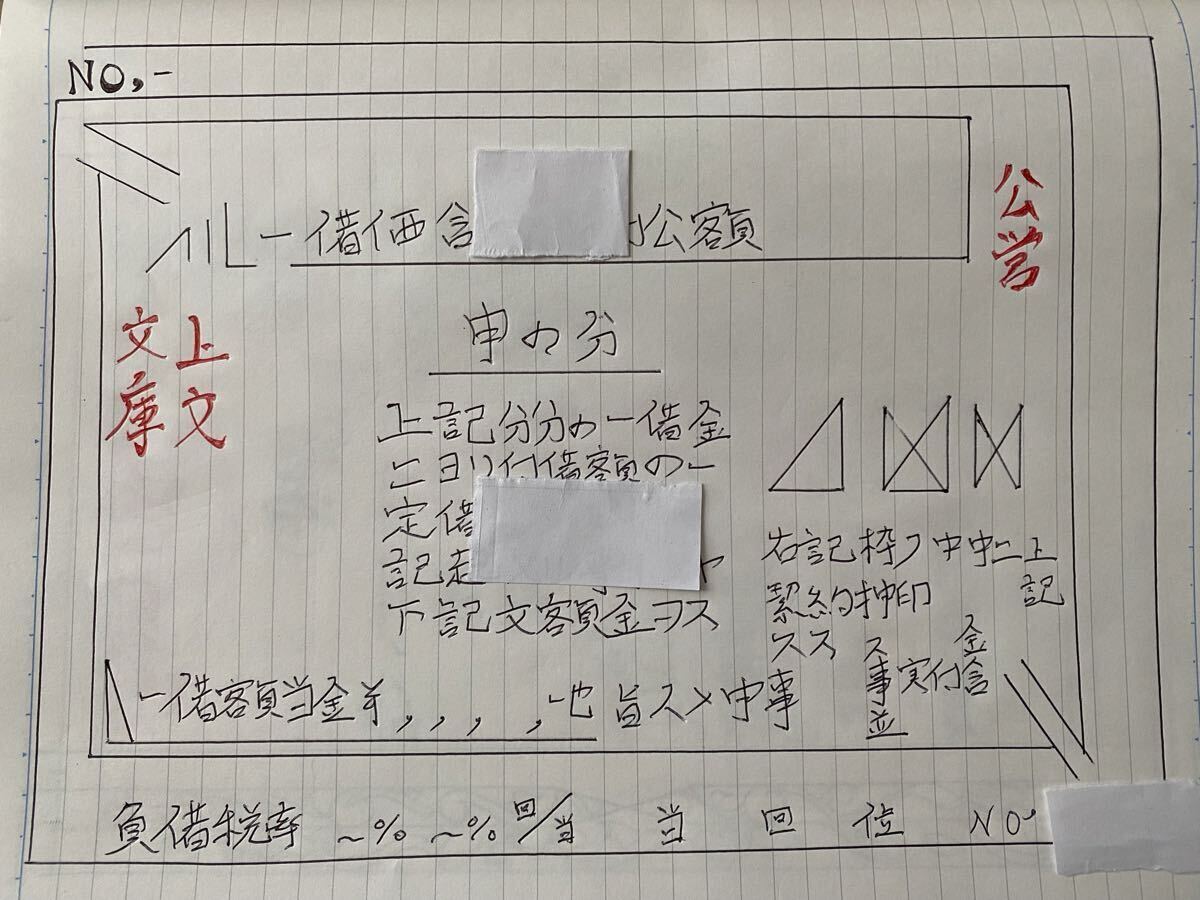 NO,-
一借価含 公額
公営
上文
文庫
申の分
上記分分の一借金
ヨリ付借客額の
定借
記走
下記文客額金ヲス
右記枠ノ中中ニ上記
契約押印
スス
金
ス事実付含
並
一借客額当金¥, , , , 也 旨スメ申事
負借税率 ~% ~% 回/当 当 回 位 NO.